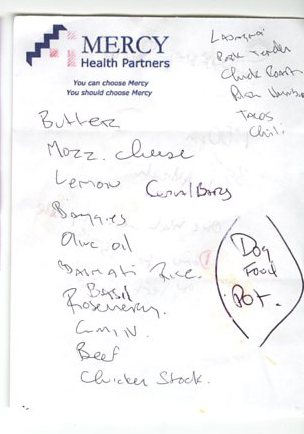 MERCY
Health Partners
You can choose Mercy
You should choose Mercy
Lasagna
Pork Tender
Chuck Roast
Tacos
Chili
Butter
Mozz. cheese
Lemon
Baggies
Olive oil
Basmati Rice.
Basil
Rosemary.
Cumin.
Beef
Chicken Stock.
Dog
Food
Pot.